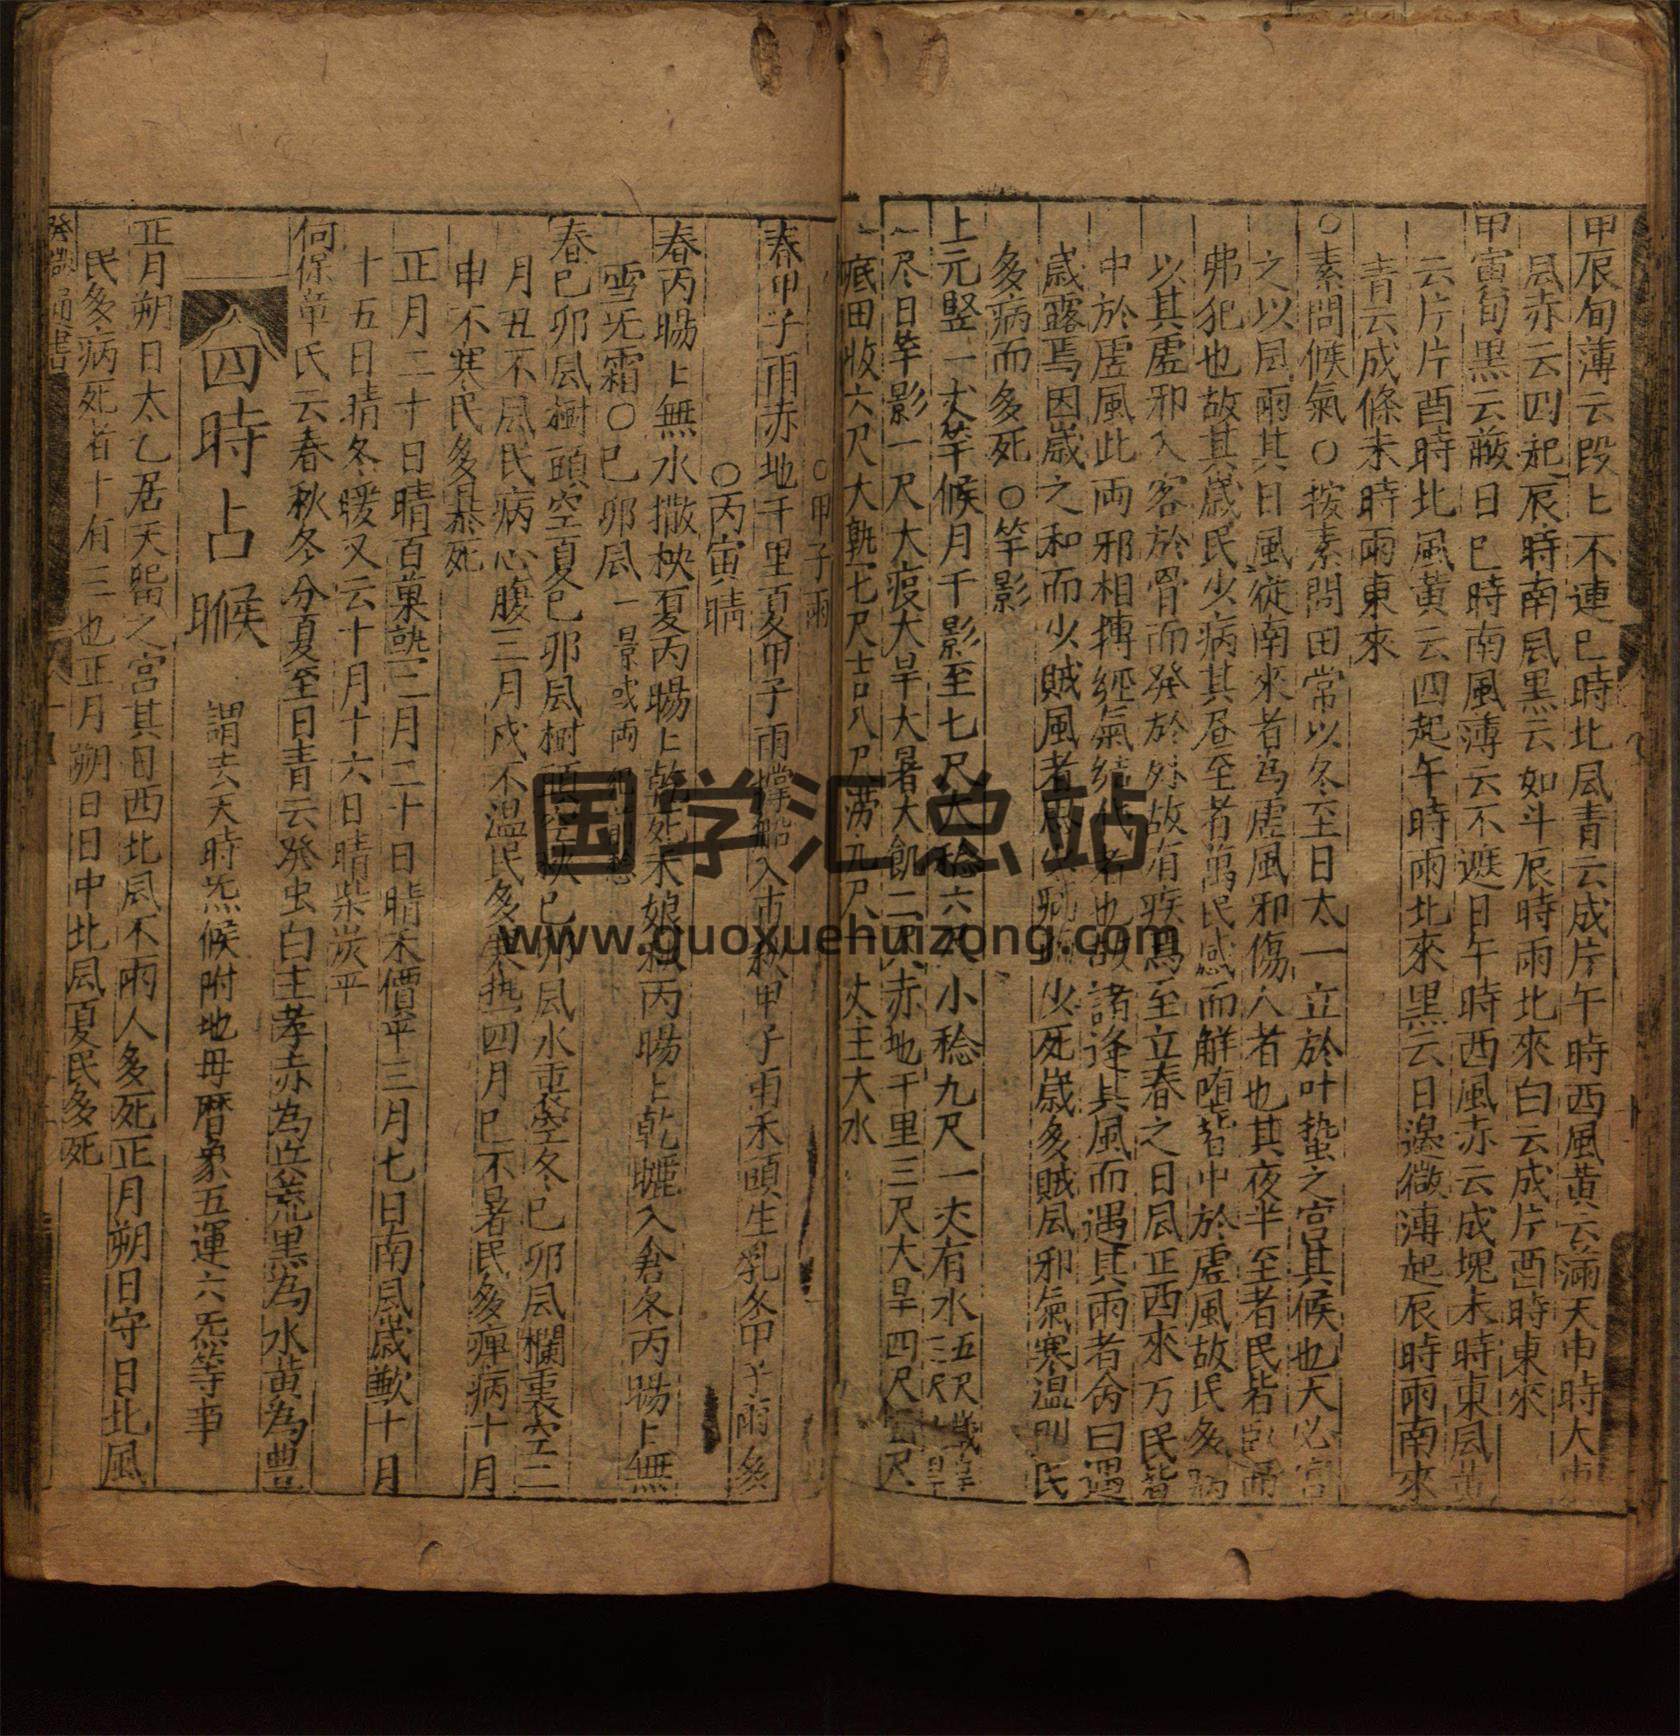 甲辰旬薄云段匕不連巳時北風青云成片午時西風黃云滿天申時大
風赤云四起辰時南風黑云如斗辰時雨北來白云成片酉時東來
甲寅旬黑云蔽日巳時南風薄云不遮日午時西風赤云成塊未時東風黃
云片片酉時北風黃云四起午時雨北來黑云日邊微薄起辰時雨南來
青云成條未時雨東來
○素問候氣○按素問曰常以冬至日太一立於叶蟄之宮其候也天必
之以風雨其日風從南來者為虛風邪傷人者也其夜半至者民皆臥而
弗犯也故其歲民少病其昼至者萬民感而觧堕皆中於虛風故民多病
以其虛邪入客於骨而發於外故有疾焉至立春之日風正西來万民皆
中於虛風此両邪相摶經氣也故諸逢其風而遇其雨者命曰遇
歲露焉因歲之和而少賊風者民少病少死歲多賊風邪氣寒温則民
多病而多死○竿影
上元竪一丈竿候月千影至七尺大稔六尺小稔九尺一丈有水五尺歲旱三尺
一尽日竿影一尺大疫大旱大暑大飢二尺赤地千里三尺大旱四尺
底田收六尺大熟七尺吉八尺澇九尺一丈主大水
○甲子雨
春甲子雨赤地千里夏甲子雨撑船入市秋甲子雨禾頭生乳冬甲子雨多
○丙寅晴
春丙暘匕無水撒秧夏丙暘匕乾死禾娘秋丙暘匕乾曬入倉冬丙暘匕無
雪旡霜○巳卯風
春巳卯風樹頭空夏巳卯風樹頭空秋巳卯風水裏空冬巳卯風欄裏空二
月丑不風民病心腹三月戍不温民多寒热四月巳不暑民多瘅病十月
申不寒民多暴死
正月二十日晴百菓熟二月二十日晴禾價平三月七日南風歲歉十月
十五日晴冬暖又云十月十六日晴柴炭平
何保章氏云春秋冬分夏至日青云發虫白主孝赤為兵荒黑為水黃為豊
四時占睺 謂去天時炁候附地毋曆象五運六炁等事
正月朔日太乙居天㽞之宮其日西北風不雨人多死正月朔日守日北風
民多病死者十有三也正月朔日日中北風夏民多死
發微通書
国学汇总站
www.guoxuehuizong.com